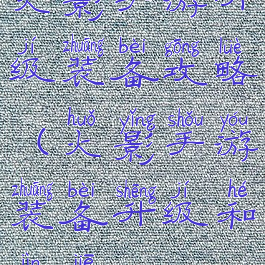 火影手游升
jí zhuāng bèi gōng lüè
级装备攻略
huǒ yǐng shǒu yóu
（火影手游
zhuāng bèi shēng jí hé
装备升级和
jìn